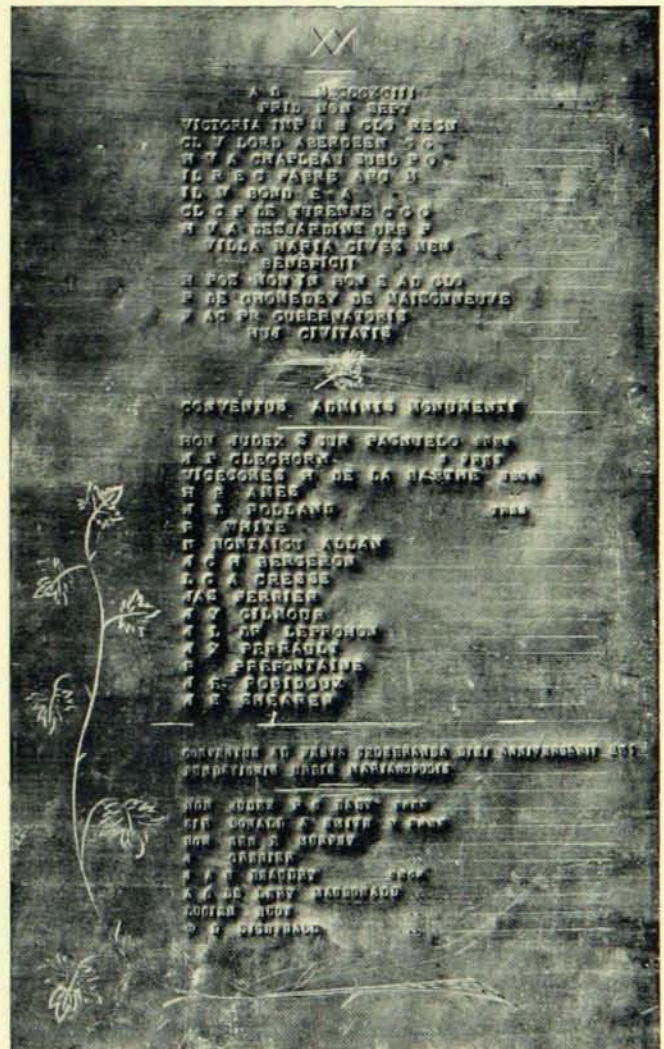 A D MDCCCXCIII
PRID NON SEPT
VICTORIA IMP N B GLO REGN
CL V LORD ABERDEEN G G
H V A CHAPLEAU SUBL P Q
IL R E C FABRE ARC M
IL V BOND E A
CL C P DE TURENNE C G G
H V A DESJARDINS URB P
VILLA MARIA CIVES MEM
BENEFICII
H POS MON IN HON E AD GLO
P DE CHOMEDEY DE MAISONNEUVE
F AC PR GUBERNATORIS
HUJ CIVITATIS
CONVENTUS ADMINIS MONUMENTI
HON JUDEX S CUR PAGNUELO
J P CLEGHORN
VICECOMES H DE LA BARTHE
H B AMES
J R
R WHITE
H MONTAIGU ALLAN
J C H BERGERON
L C A CRESSE
JAS PERRIER
J Y GILMOUR
J L DR LEPROHON
J X PERRAULT
R PREFONTAINE
J E ROBIDOUX
J F SHEARER
CONVENTUS AD FESTA ANNIVERSARII
FUNDATIONIS URBIS MARIANOPOLIS
HON JUDEX BABY
SIR DONALD A SMITH
HON SEN E MURPHY
GRENIER
BEAUDRY
A C DE LERY MACDONALD
LUCIEN HUOT
W D LIGHTHALL